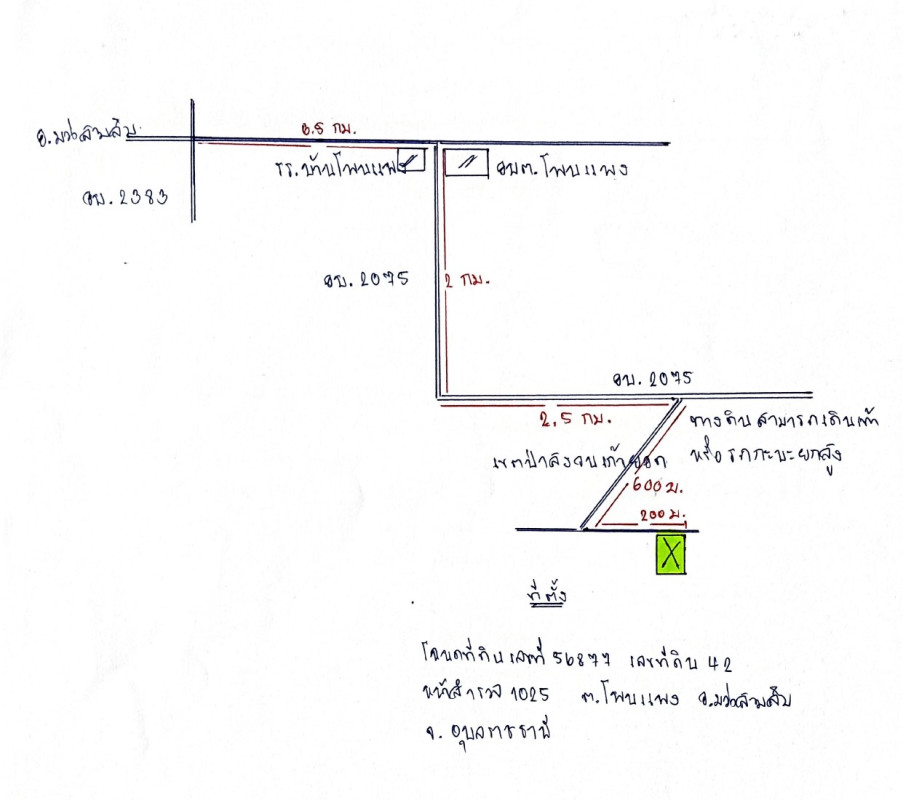 อ.ม่วงสามสิบ
6.5 กม.
รร.บ้านโพนแพง
อบต.โพนแพง
อบ. 2383
อบ. 2075
2 กม.
อบ. 2075
2.5 กม.
ทางดิน สามารถเดินเท้า
หรือ รถกะบะยกสูง
เขตป่าสงวนเก้ายอด
600 ม.
200 ม.
X
ที่ตั้ง
โฉนดที่ดิน เลขที่ 56877 เลขที่ดิน 42
หน้าสำรวจ 1025 ต.โพนแพง อ.ม่วงสามสิบ
จ. อุบลราชธานี